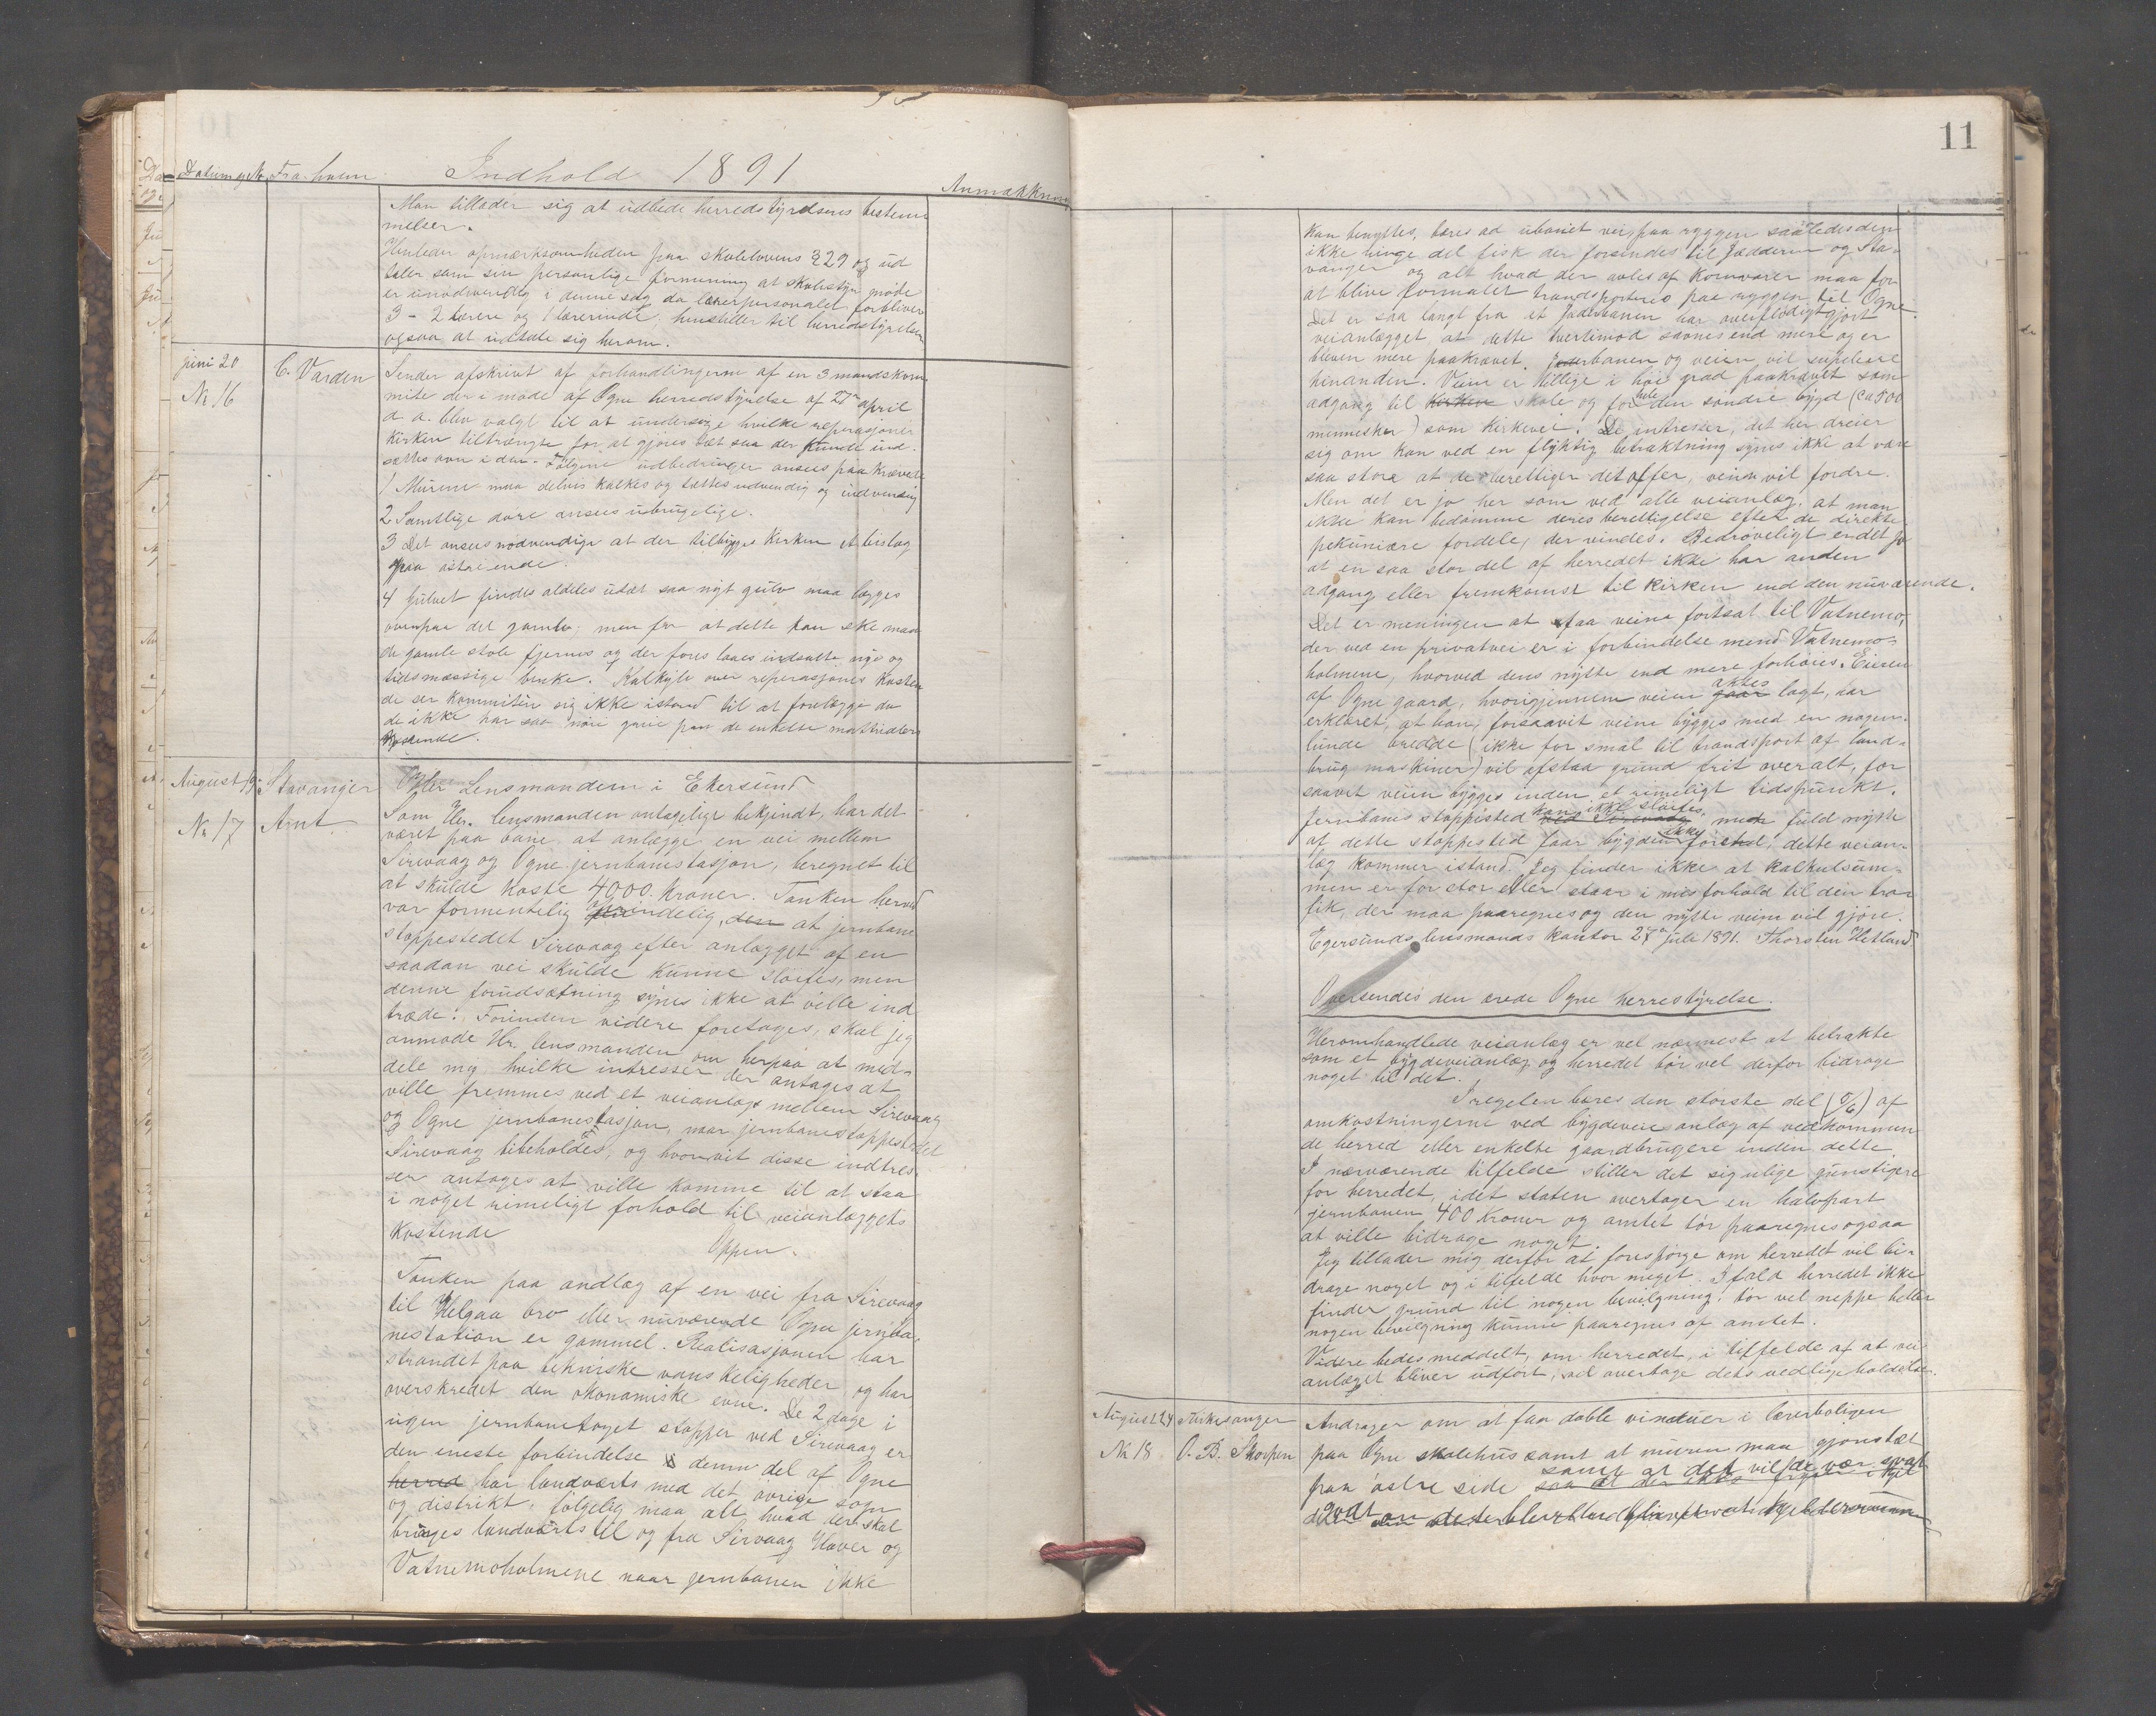 Datum og No Fra hvem Indhold 1891 Anmærkning
Man tillader sig at udbede herredstyrelsens bestem
melser.
Henleder opmærksomheden paa skolelovens § 29 og ud
taler som sin personlige formening at skolestyr møde
er unødvendig i denne sag da lærerpersonalet forbliver
3 - 2 lærere og 1 lærerinde; henstiller til herredstyrelsen
ogsaa at udtale sig herom.
juni 20 C. Varden Sender afskrivt af forhandlingerne af en 3 mandskom
No 16 mite der i møde af Ogne herredstyrelse af 27de april
d. a. blev valgt til at undersøge hvilke reperasjoner
kirken tiltrængte for at gjøres tæt saa der kunde ind
sættes ovn i den. Følgene udbedringer ansees paakrævede
1 Murene maa delvis kalkes og tættes udvendig og indvendig
2 Samtlige døre ansees ubrugelige.
3 Det ansees nødvendige at der tilbygges Kirken et bislag
paa østre ende.
4 Gulvet findes aldeles utæt saa nyt gulv maa lægges
ovenpaa det gamle; men for at dette kan ske maa
de gamle stole fjernes og der foreslaaes indsatte nye og
tidsmæssige benke. Kalkyle over reperasjones kosten
de ser kommitéen sig ikke istand til at forelægge da
de ikke har saa nøie greie paa de enkelte matrialers
kostende.
August 19 Stavanger Ogter Lensmanden i Ekersund
No 17 Amt. Som Hr. lensmanden antagelige bekjendt, har det
været paa bane at anlægge en vei mellem
Sirevaag og Ogne jernbanestasjon, beregnet til
at skulde koste 4000 kroner. Tanken herved
var formentelig oprindelig, den at jernbane
stoppestedet Sirevaag efter anlægget af en
saadan vei skulde kunne sløifes, men
denne forudsætning synes ikke at ville ind
træde. Forinden videre foretages, skal jeg
anmode Hr. lensmanden om herpaa at med-
dele mig hvilke intresser der antages at
ville fremmes ved et veianlæg mellem Sirevaag
og Ogne jernbanestasjon, naar jernbanestoppestedet
Sirevaag bibeholdes, og hvorvit disse indtres
ser antages at ville komme til at staa
i noget rimeligt forhold til veianlæggets
kostende
Oppen.
Tanken paa andlæg af en vei fra Sirevaag
til Helgaa bro eller nuværende Ogne jernba-
nestation er gammel. Realisasjonen har
strandet paa tekniske vanskeligheder og har
overskredet den økonomiske evne. De 2 dage i
ugen jernbanetoget stopper ved Sirevaag er
den eneste forbindelse denne del af Ogne
herred har landværts med det øvrige sogn
og distrikt, følgelig maa alt hvad der skal
bringes landværts til og fra Sirvaag Haver og
Vatnemoholmene naar jernbanen ikke
11
kan benyttes, bæres ad ubanet vei paa ryggen saaledes den
ikke ringe del fisk der forsendes til Jædderen og Sta-
vanger og alt hvad der avles af kornvarer maa for
at blive formalet trandsporteres paa ryggen til Ogne.
Det er saa langt fra at Jæderbanen har overflødigtgjort
veianlægget, at dette tvertimod savnes end mere og er
bleven mere paakrævet. Jæderbanen og veien vil supelere
hinanden. Veien er tillige i høi grad paakrævet som
adgang til kirken skole og for hele den søndre bygd (ca 500
mennesker) som kirkevei. De intresser, det her dreier
sig om kan ved en flygtig betraktning synes ikke at være
saa store at de berettiger det offer, veien vil fordre.
Men det er jo her som ved alle veianlæg, at man
ikke kan bedømme deres berettigelse efter de direkte
pekuniære fordele, der vindes. Bedrøveligt er det jo
at en saa stor del af herredet ikke har anden
adgang eller fremkomst til kirken end den nuværende.
Det er meningen at faa veine fortsat til Vatnemo,
der ved en privatvei er i forbindelse mend Vatnemo-
holmene, hvorved dens nytte end mere forhøies. Eieren
af Ogne gaard, hvorigjennem veien gaar aktes lagt, har
erklæret, at han, forsaavit veien bygges med en nogen-
lunde bredde (ikke for smal til trandsport af land-
brug maskiner) vil afstaa grund frit overalt, for
saavit veien bygges inden et rimeligt tidspunkt.
Jernbanes stoppisted ved Sirevaag kan ikke sløifes, med fuld nytte
af dette stoppested faar bygden ikke førend dette veian-
læg kommer istand. Jeg finder ikke at kalkulsum-
men er for stor eller staar i misforhold til den tra-
fik, der maa paaregnes og den nytte veien vil gjøre.
Egersunds lensmands kantor 27de juli 1891. Thorsten Hetland
Oversendes den ærede Ogne herrestyrelse.
Heromhandlede veianlæg er vel nærmest at betrakte
som et bygdeveianlæg og herredet bør vel derfor bidrage
noget til det.
I regelen bæres den største del (5/6) af
omkostningerne ved bygdeveie anlæg af vedkommen
de herred eller enkelte gaardbrugere inden dette.
I nærværende tilfelde stiller det sig ulige gunstigere
for herredet, idet staten overtager en halvpart
jernbanen 400 kroner og amtet tør paaregnes ogsaa
at ville bidrage noget.
Jeg tillader mig derfor at forespørge om herredet vil bi-
drage noget og i tilfelde hvor meget. I fald herredet ikke
finder grund til nogen bevilgning, tør vel neppe heller
nogen bevilgning kunne paaregnes af amtet.
Videre bedes meddelt, om herredet, i tilfelde af at vei
anlæget bliver udført, vil overtage dets vedligeholdelse.
August 24 Kirkesanger Andrager om at faa doble vinduer i lærerboligen
No 18 O. B. Skorpen paa Ogne skolehus samt at muren maa gjøres tæt
paa østre side samt at det vil de vær svart
godt